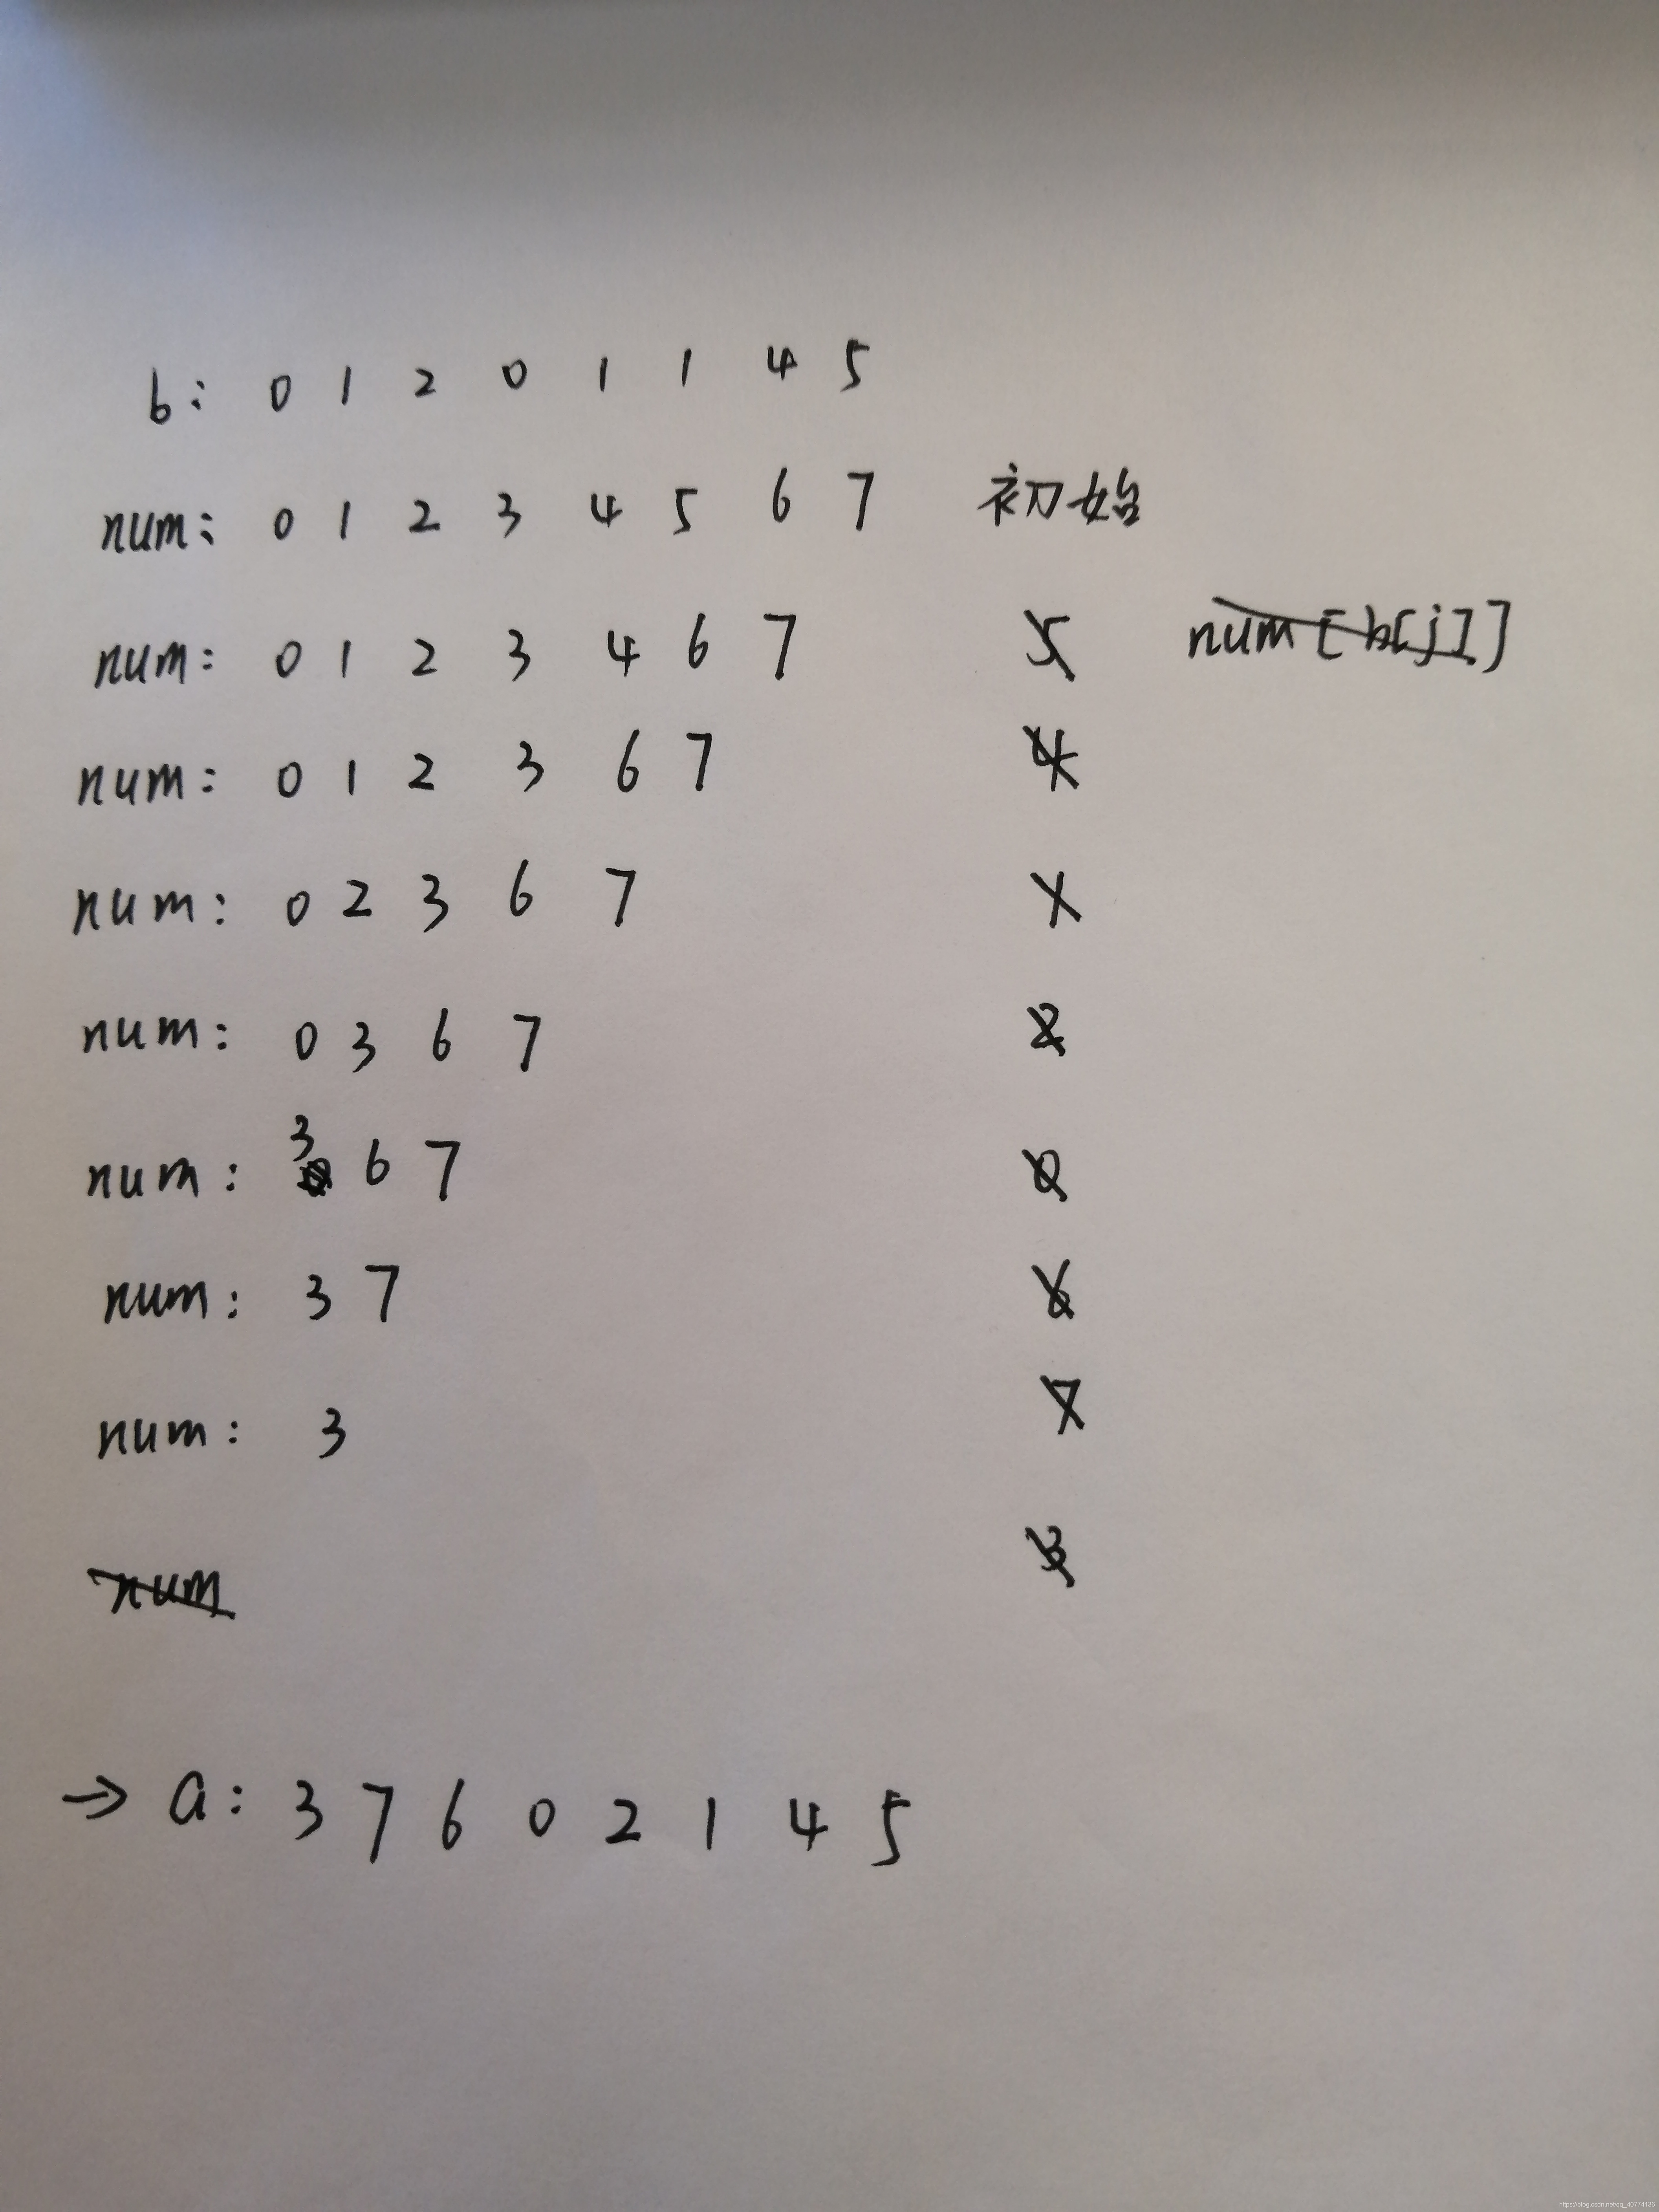 b: 0 1 2 0 1 1 4 5
num: 0 1 2 3 4 5 6 7 初始
num: 0 1 2 3 4 6 7 5 num[b[j]]
num: 0 1 2 3 6 7 4
num: 0 2 3 6 7 1
num: 0 3 6 7 2
num: 3 6 7 0
num: 3 7 6
num: 3 7
num 3
→ a: 3 7 6 0 2 1 4 5
https://blog.csdn.net/qq_40774136